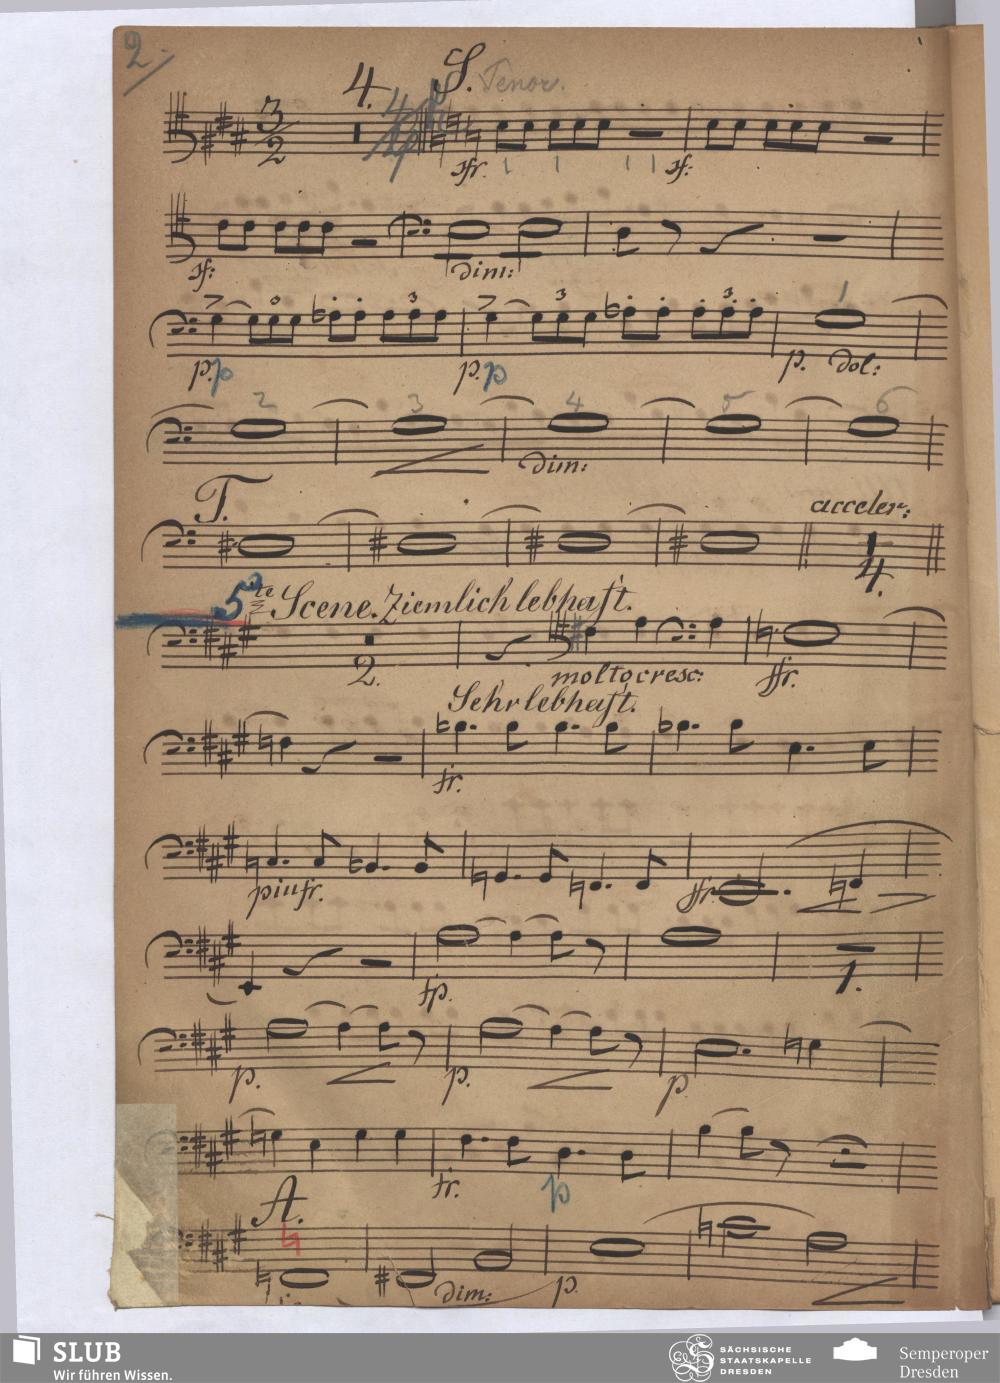 2.
4. S. Tenor.
3/2 4
sfr. 1 1 1 1 sf:
sf: dim:
3 3 3 1
p. p p. p p. dol:
2 3 4 5 6
dim:
T. acceler:
4.
5te Scene. Ziemlich lebhaft.
2. molto cresc: ffr.
Sehr lebhaft.
fr.
piu fr. ffr.
fp. 1.
p. p. p
fr. p
A.
dim: p.
SLUB
Wir führen Wissen.
SÄCHSISCHE
STAATSKAPELLE
DRESDEN
Semperoper
Dresden